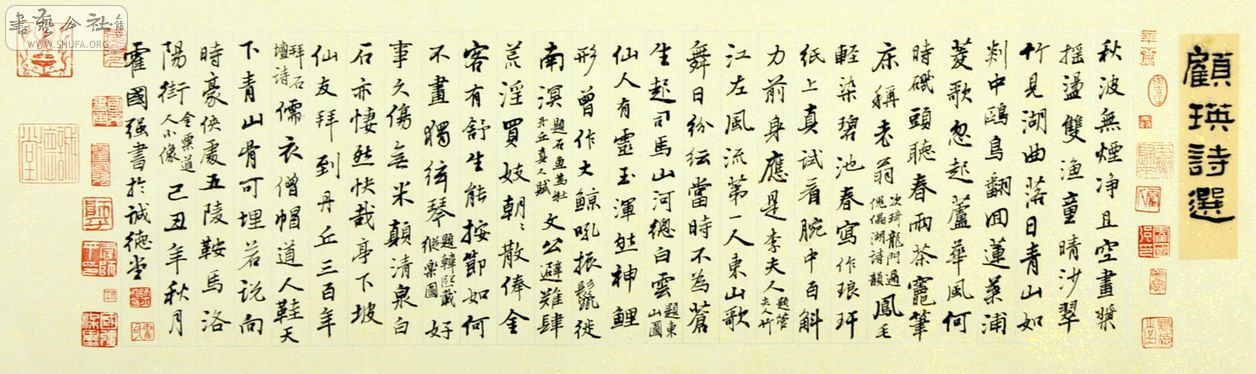 書藝公社
WWW.SHUFA.ORG
顧瑛詩選
秋波無煙净且空畫槳
摇盪雙漁童晴沙翠
竹見湖曲落日青山如
剡中鷗鳥翻回蓮葉浦
菱歌忽起蘆華風何
時磯頭聽春雨茶竈筆
床稱老翁
次琦龍門過
傀儡湖詩韻
鳳毛
輕染碧池春寫作琅玕
紙上真試看腕中百斛
力前身應是李夫人
題管
夫人竹
江左風流第一人東山歌
舞日紛紜當時不為蒼
生起司馬山河總白雲
題東
山圖
仙人有靈玉渾然神鯉
形曾作大鯨吼振鬣徙
南溟
題石魚為杜
丹丘真人賦
文公避難肆
荒淫買妓朝〻散俸金
客有舒生能按節如何
不畫獨絃琴
題韓熙載
縱樂圖
好
事久傷無米顛清泉白
石亦悽然快哉亭下坡
仙友拜到丹丘三百年
拜石
壇詩
儒衣僧帽道人鞋天
下青山骨可埋若說向
時豪俠處五陵鞍馬洛
陽街
金粟道
人小像
己丑年秋月
霍國强書於誠德堂